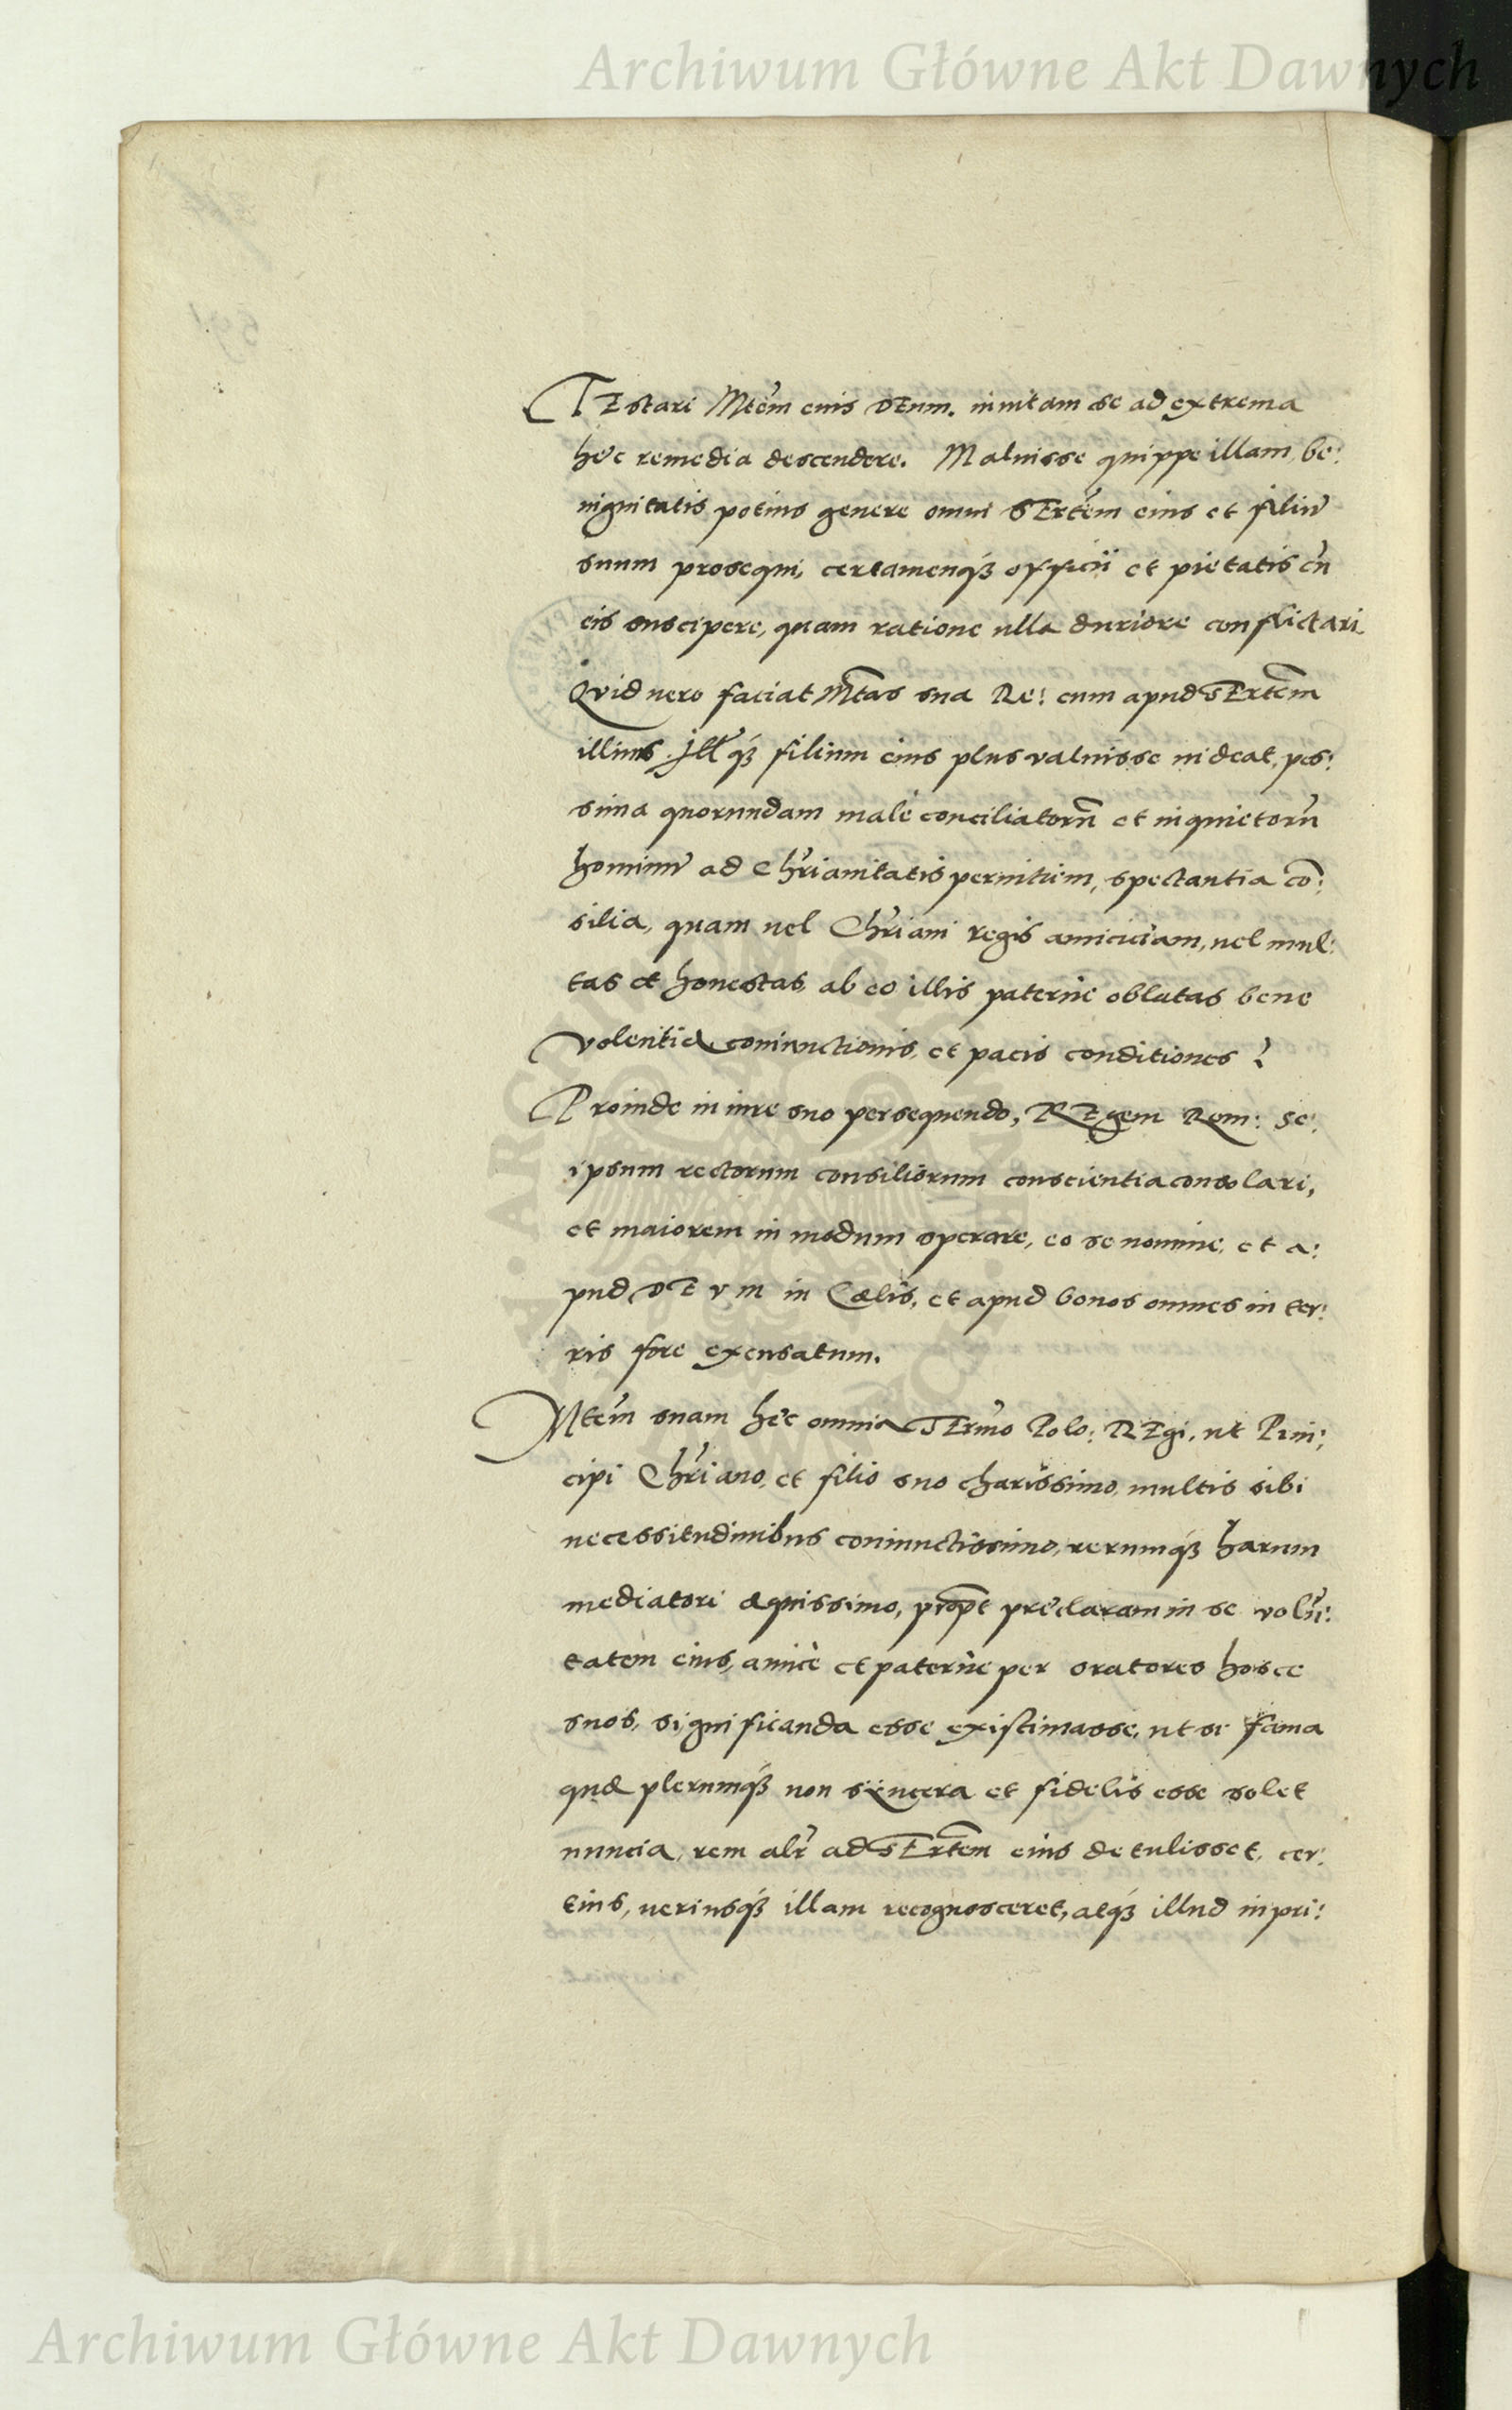 Archiwum Główne Akt Dawnych
TEstari Mtem̄ eius DEum. inuitam se ad extrema
hęc remedia descendere. Maluisse quippe illam, be:
nignitatis potius genere omni SErtem̄ eius et filiū
suum prosequi, certamenq́ʒ officii et pietatis cū
eis suscipere, quam ratione ulla duriore conflictari.
Quid uero faciat Mtas̄ sua Re: cum apud SErtem̄
illius, Ill q́ʒ filium eius plus valuisse uideat, pes:
sima quorundam malè conciliatorū et inquietorū
hominū ad Chr̄ianitatis pernitiem, spectantia cō:
silia, quam uel Chr̄iani regis amiciciam, uel mul:
tas et honestas, ab eo illis paternè oblatas bene
volentiæ coniunctionis, et pacis conditiones?
Proinde in iure suo persequendo, REgem Rom: se:
ipsum rectorum consiliorum conscientia consolari,
et maiorem in modum sperare, eo se nomine, et a:
pud DEVM in Cælis, et apud bonos omnes in ter:
ris fore excusatum.
Mtem̄ suam hęc omnia SErmo̅ Polo: REgi, ut Prin:
cipi Chr̄iano, et filio suo charissimo, multis sibi
necessitudinibus coniunctissimo, rerumq́ʒ harum
mediatori æquissimo, propt̄ pręclaram in se volū:
tatem eius, amicè et paternè per oratores hosce
suos, significanda esse existimasse, ut si fama
quæ plerumq́ʒ non syncera et fidelis esse solet
nuncia, rem alr̄ ad SErtem̄ eius detulisset, cer:
tius, ueriusq́ʒ illam recognosceret, atq́ʒ illud inpri:
Archiwum Główne Akt Dawnych